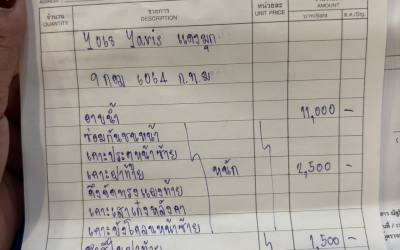 จำนวน รายการ หน่วยละ AMOUNT
QUANTITY DESCRIPTION UNIT PRICE บาท/Baht ส.ต./Stg.
Yaris แดงมุก
9 กฌ 6064 ก.ท.ม
อาบน้ำ 11,000 -
ซ่อมกันชนหน้า
เคาะประตูหน้าซ้าย
เคาะฝาท้าย หนัก 2,500 -
ดึงจัดทรงแผงท้าย
เคาะเสาเก๋งหลังคา
เคาะบังโคลนหน้าซ้าย
1,500 -